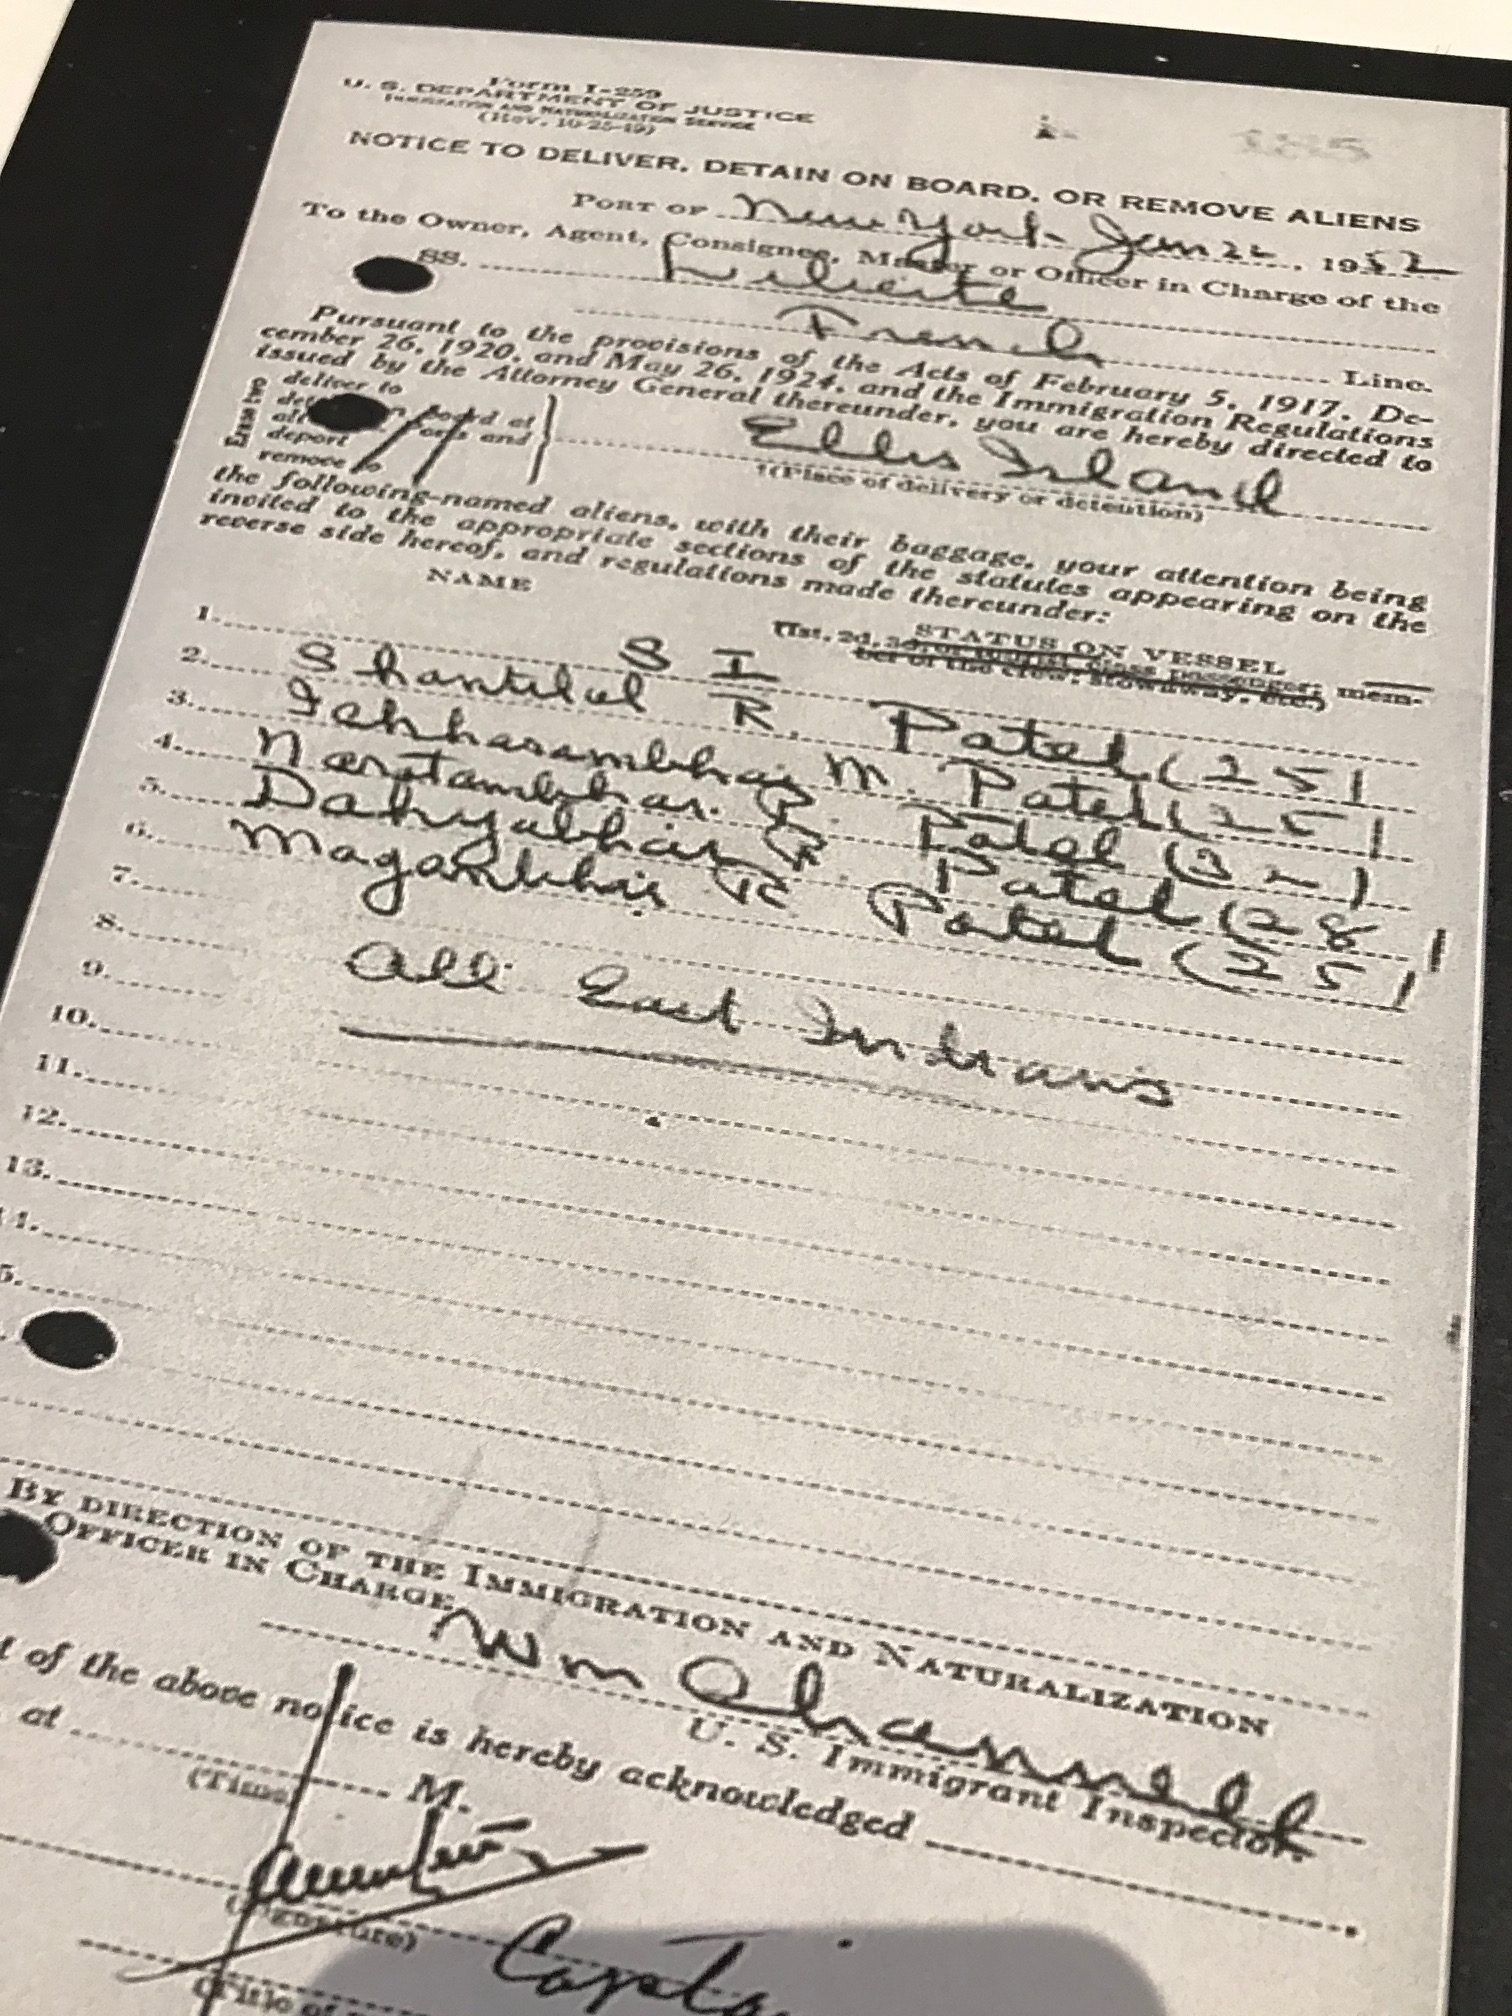 Form I-259
U. S. DEPARTMENT OF JUSTICE
IMMIGRATION AND NATURALIZATION SERVICE
(Rev. 10-25-49)
NOTICE TO DELIVER, DETAIN ON BOARD, OR REMOVE ALIENS
PORT OF New York Jan 22, 1952
To the Owner, Agent, Consignee, Master or Officer in Charge of the
SS. Liberte
French Line.
Pursuant to the provisions of the Acts of February 5, 1917, De-
cember 26, 1920, and May 26, 1924, and the Immigration Regulations
issued by the Attorney General thereunder, you are hereby directed to
deliver to
on board at
and
deport
remove to
Ellis Island
(Place of delivery or detention)
the following-named aliens, with their baggage, your attention being
invited to the appropriate sections of the statutes appearing on the
reverse side hereof, and regulations made thereunder:
NAME
STATUS ON VESSEL
(1st, 2d, 3d, or tourist class passenger; mem-
ber of the crew; stowaway, etc.)
1. S I
2. Shantilal R. Patel (25)
3. M. Patel (25)
4. Patel (32)
5. Dahyabhai P. Patel (28)
6. Maganbhai R. Patel (25)
7.
8. All East Indians
9.
10.
11.
12.
13.
BY DIRECTION OF THE IMMIGRATION AND NATURALIZATION
OFFICER IN CHARGE
Wm Channell
U. S. Immigrant Inspector.
of the above notice is hereby acknowledged
at M.
(Time
(Signature)
(Title of